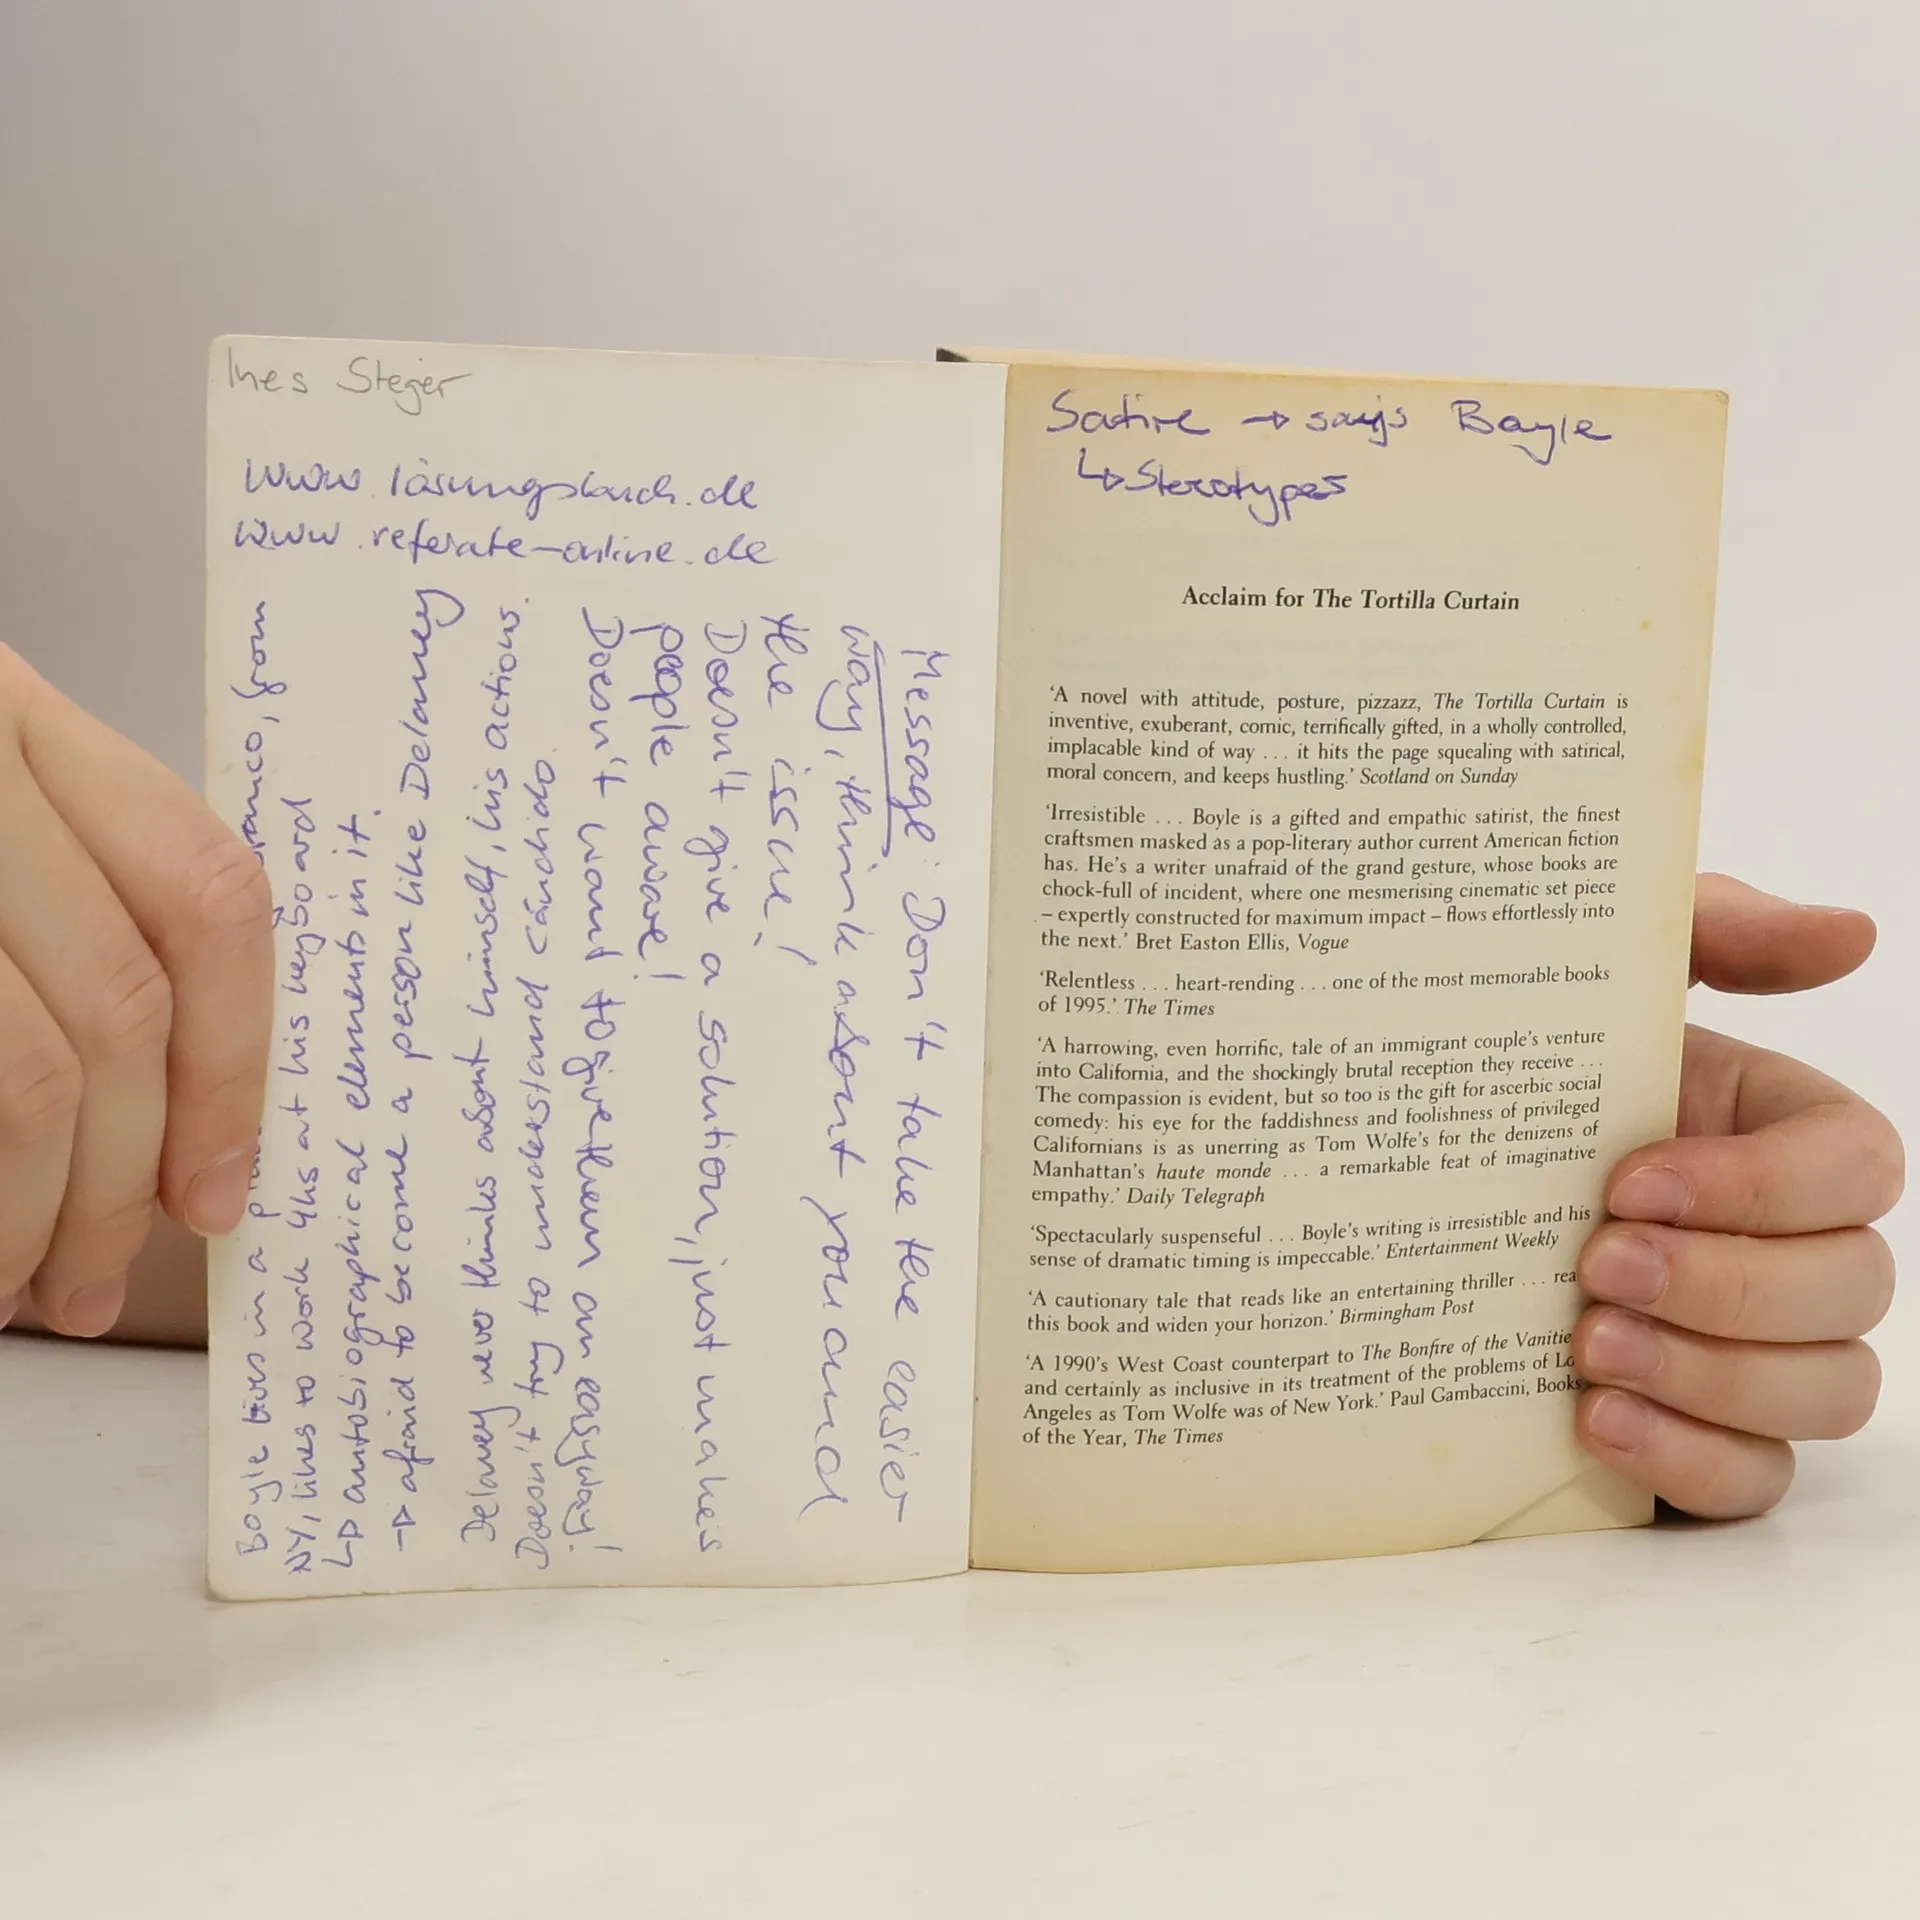 Ines Steger
www.lösungsbuch.de
www.referate-online.de
Boyle lives in a from
NY, likes to work 4hs at his keyboard
↳ autobiographical elements in it.
→ afraid to become a person like Delaney
Delaney never thinks about himself, his actions.
Doesn't try to understand Cándido.
Doesn't want to give them an easy
Doesn't give a solution, just makes
people aware!
Message: Don't take the easier
way, think about you and
the issue!
Satire → says Boyle
↳ Sterotypes
Acclaim for The Tortilla Curtain
‘A novel with attitude, posture, pizzazz, The Tortilla Curtain is
inventive, exuberant, comic, terrifically gifted, in a wholly controlled,
implacable kind of way . . . it hits the page squealing with satirical,
moral concern, and keeps hustling.’ Scotland on Sunday
‘Irresistible . . . Boyle is a gifted and empathic satirist, the finest
craftsmen masked as a pop-literary author current American fiction
has. He's a writer unafraid of the grand gesture, whose books are
chock-full of incident, where one mesmerising cinematic set piece
– expertly constructed for maximum impact – flows effortlessly into
the next.’ Bret Easton Ellis, Vogue
‘Relentless . . . heart-rending . . . one of the most memorable books
of 1995.’ The Times
‘A harrowing, even horrific, tale of an immigrant couple's venture
into California, and the shockingly brutal reception they receive . . .
The compassion is evident, but so too is the gift for ascerbic social
comedy: his eye for the faddishness and foolishness of privileged
Californians is as unerring as Tom Wolfe's for the denizens of
Manhattan's haute monde . . . a remarkable feat of imaginative
empathy.’ Daily Telegraph
‘Spectacularly suspenseful . . . Boyle's writing is irresistible and his
sense of dramatic timing is impeccable.’ Entertainment Weekly
‘A cautionary tale that reads like an entertaining thriller . . . rea
this book and widen your horizon.’ Birmingham Post
‘A 1990's West Coast counterpart to The Bonfire of the Vanitie
and certainly as inclusive in its treatment of the problems of Lo
Angeles as Tom Wolfe was of New York.’ Paul Gambaccini, Books
of the Year, The Times